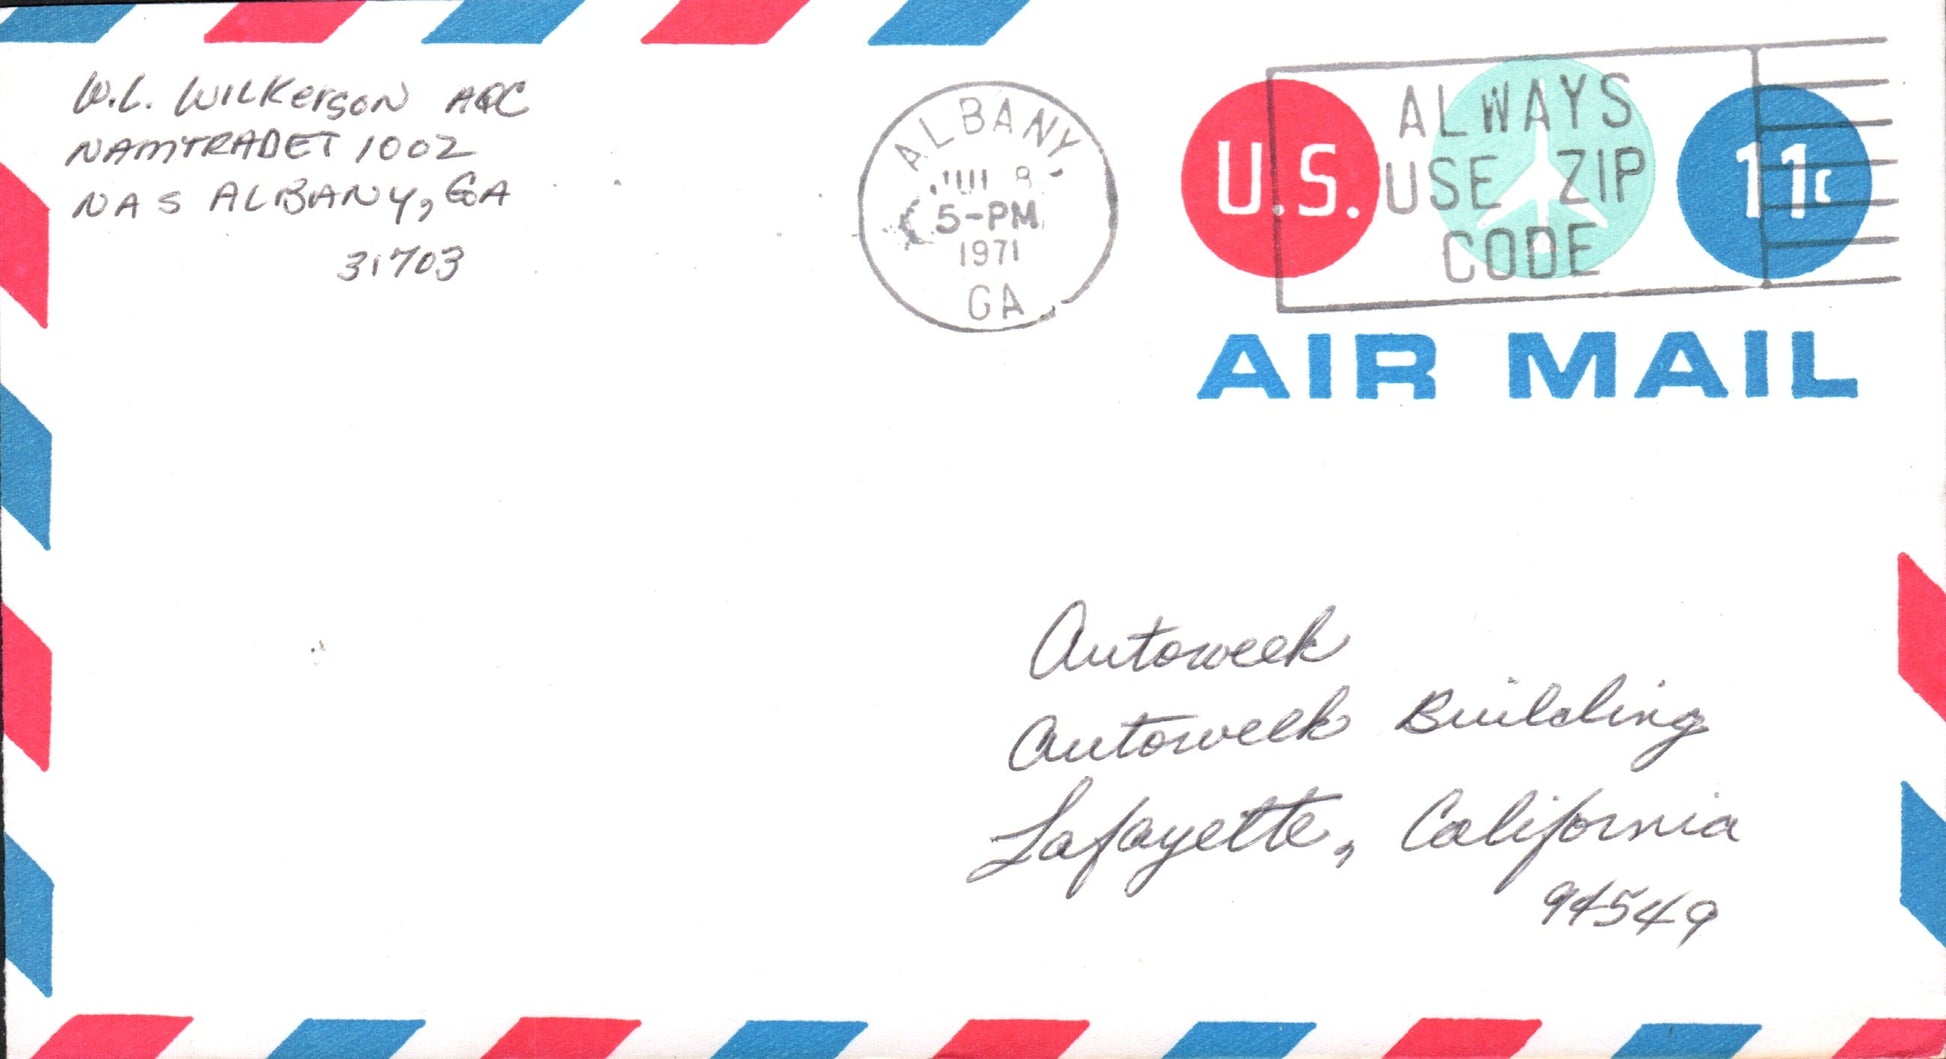 W.L. WILKerson AQC
NAMTRADET 1002
NAS ALBANY, GA
31703
ALBANY,
8
5-PM
1971
GA
ALWAYS
USE ZIP
CODE
U.S.
11c
AIR MAIL
Autoweek
Autoweek Building
Lafayette, California
94549